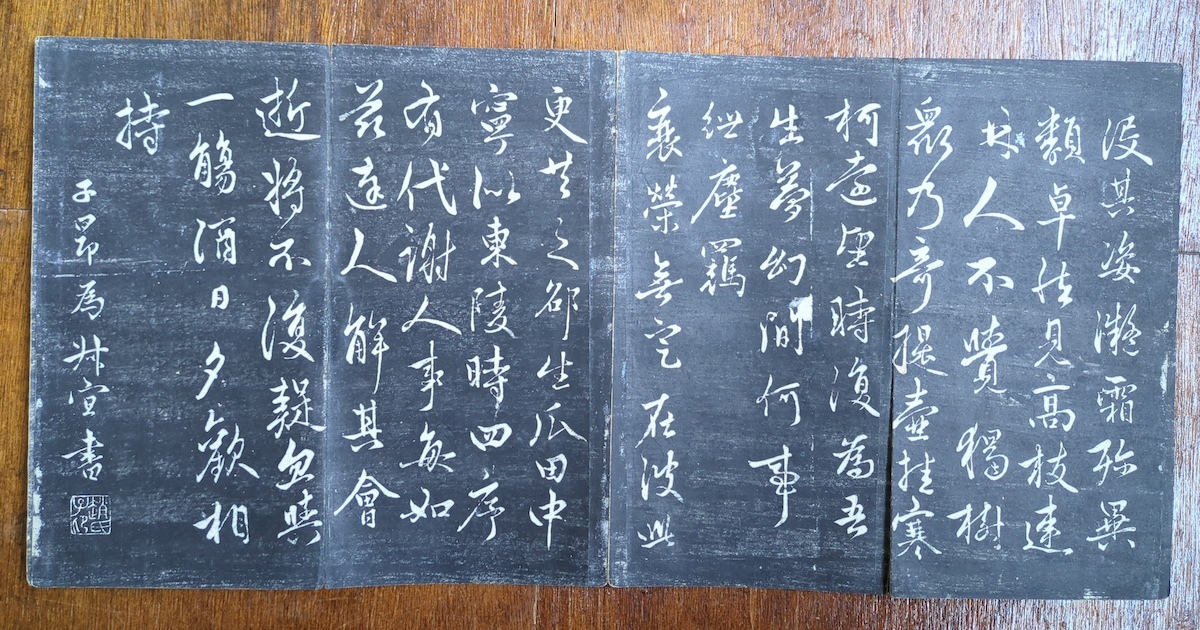 没其姿凝霜殄異
類卓然見高枝連
林人不覺獨樹
眾乃奇提壺挂寒
柯遠望時復為吾
生夢幻間何事
紲塵羈
衰榮無定在彼此
更共之邵生瓜田中
寧似東陵時四序
有代謝人事每如
茲達人解其會
逝將不復疑忽與
一觴酒日夕歡相
持
子昂為叔宣書
趙氏子昂